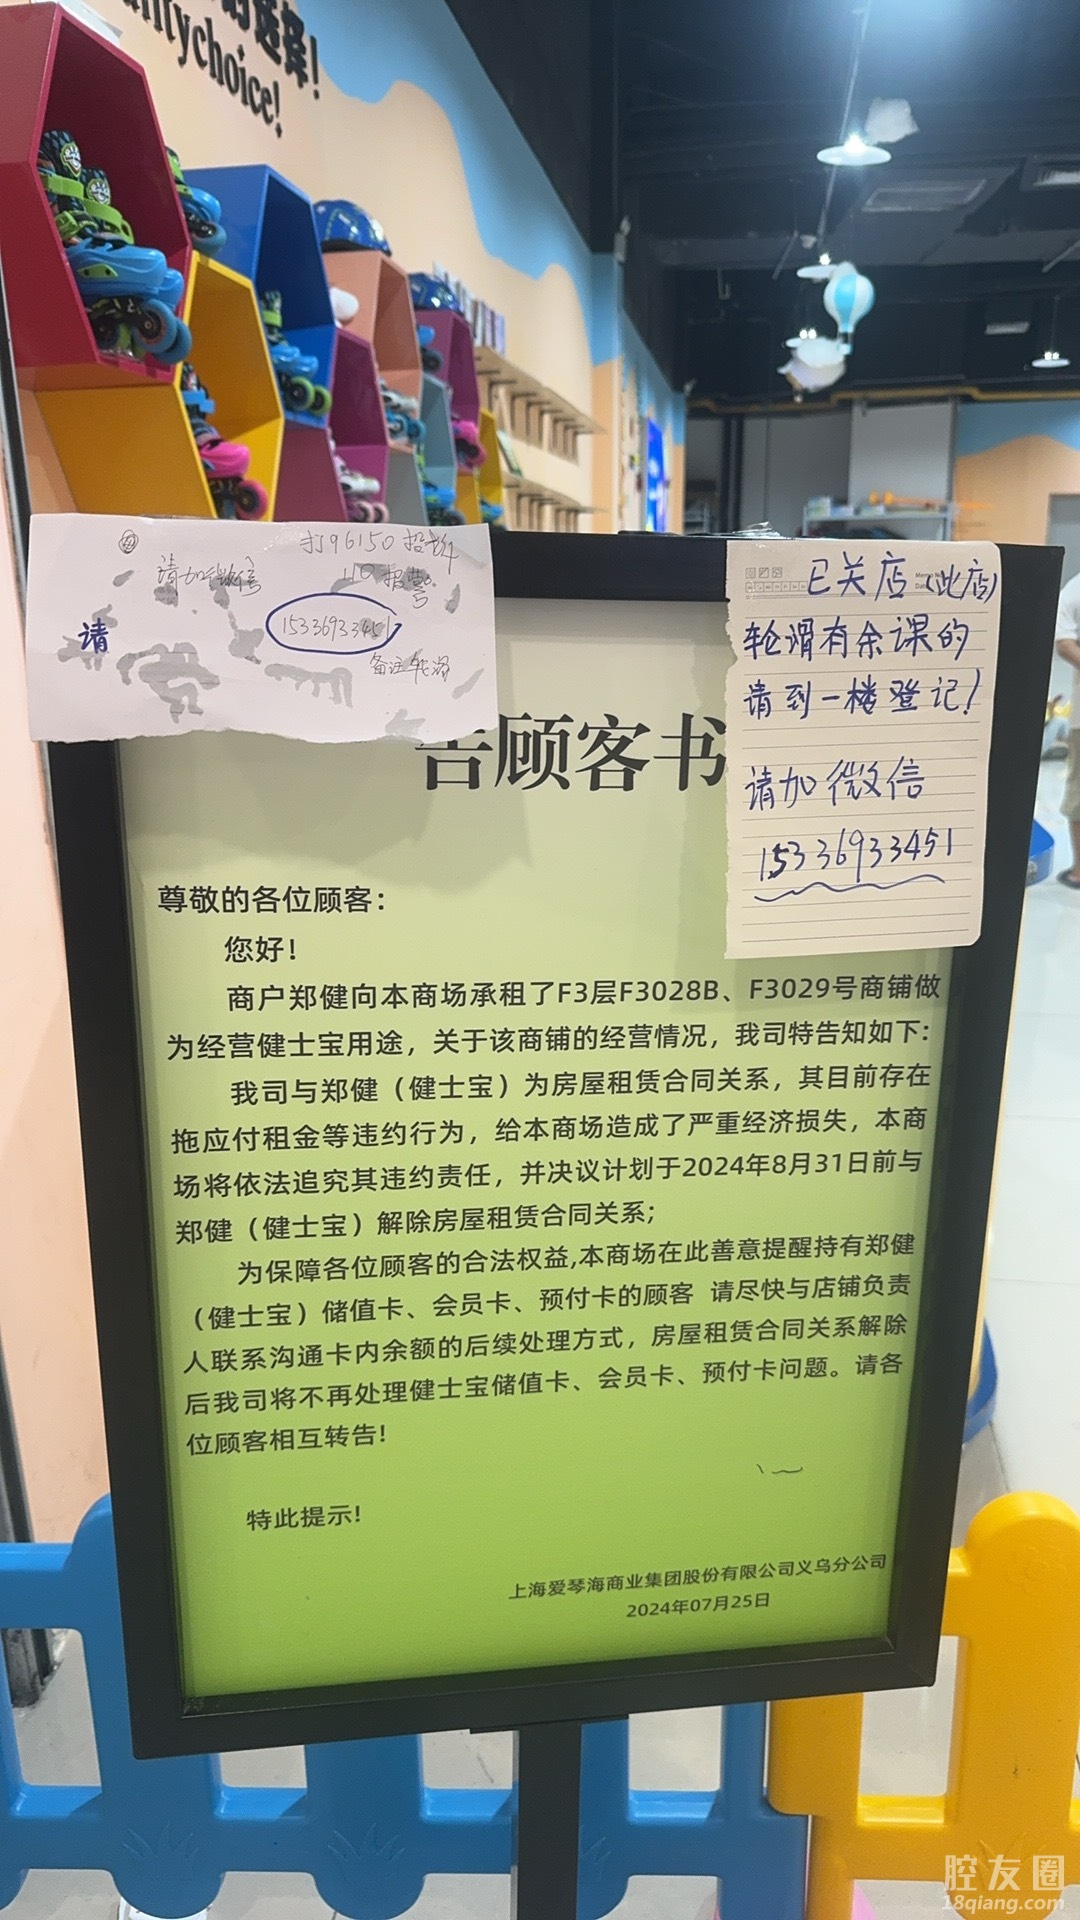 的选择!
choice!
打96150投诉
请加微信
110报警
请
15336933451
备注轮滑
已关店(此店)
轮滑有余课的
请到一楼登记!
请加微信
15336933451
告顾客书
尊敬的各位顾客：
您好！
商户郑健向本商场承租了F3层F3028B、F3029号商铺做
为经营健士宝用途，关于该商铺的经营情况，我司特告知如下：
我司与郑健（健士宝）为房屋租赁合同关系，其目前存在
拖应付租金等违约行为，给本商场造成了严重经济损失，本商
场将依法追究其违约责任，并决议计划于2024年8月31日前与
郑健（健士宝）解除房屋租赁合同关系；
为保障各位顾客的合法权益,本商场在此善意提醒持有郑健
（健士宝）储值卡、会员卡、预付卡的顾客 请尽快与店铺负责
人联系沟通卡内余额的后续处理方式，房屋租赁合同关系解除
后我司将不再处理健士宝储值卡、会员卡、预付卡问题。请各
位顾客相互转告！
特此提示！
上海爱琴海商业集团股份有限公司义乌分公司
2024年07月25日
腔友圈
18qiang.com